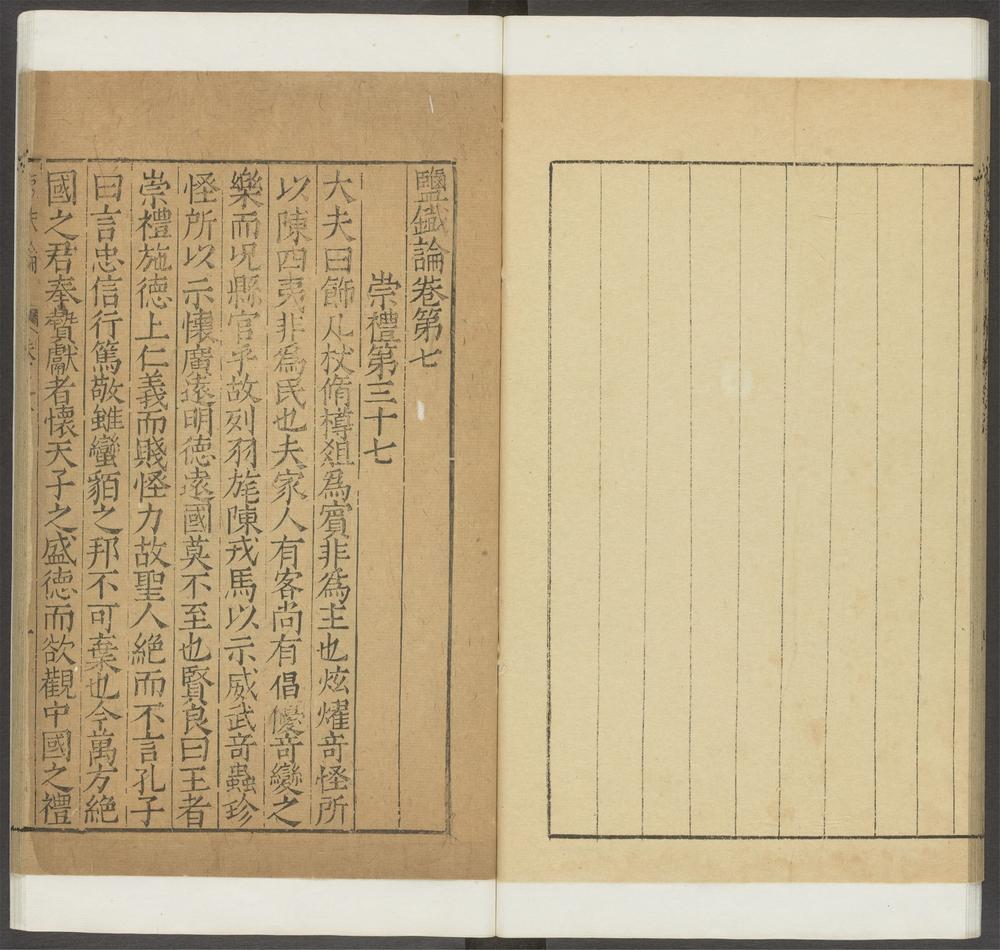 鹽鐵論卷第七
崇禮第三十七
大夫曰飾几杖脩樽俎為賓非為主也炫燿奇怪所
以陳四夷非為民也夫家人有客尚有倡優奇變之
樂而况縣官乎故列羽旄陳戎馬以示威武奇蟲珍
怪所以示懷廣遠明德遠國莫不至也賢良曰王者
崇禮施德上仁義而賤怪力故聖人絶而不言孔子
曰言忠信行篤敬雖蠻貊之邦不可棄也今萬方絶
國之君奉贄獻者懷天子之盛德而欲觀中國之禮